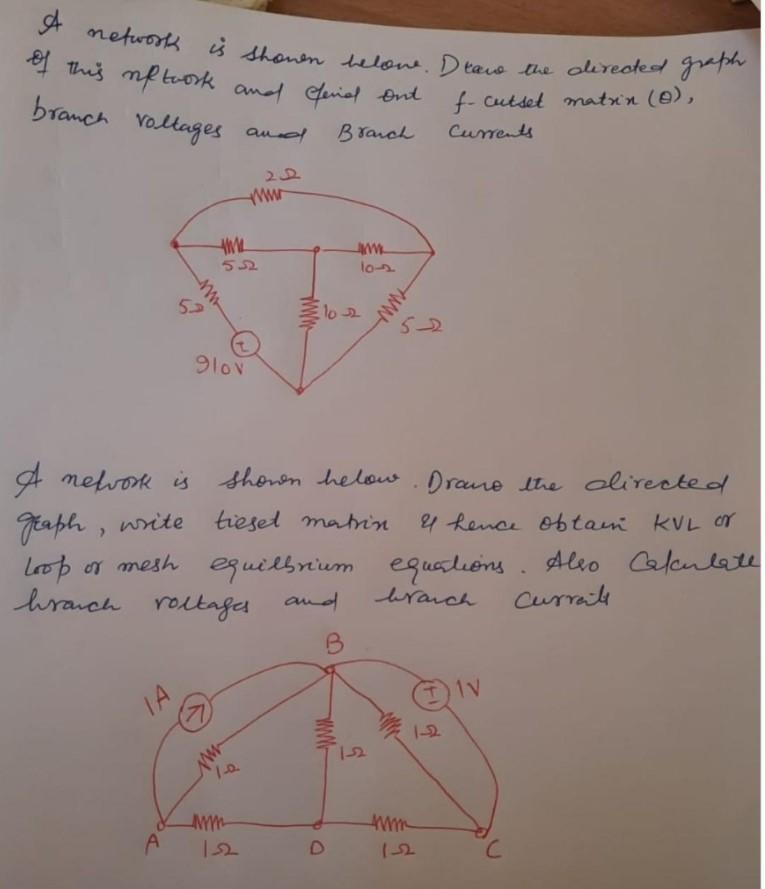 A network is shown below. Draw the directed graph
of this network and find out f-cutset matrix (Q),
branch voltages and Branch Currents
2Ω
5Ω 10Ω
5Ω 10Ω 5Ω
910V
A network is shown below. Draw the directed
graph, write tieset matrix & hence obtain KVL or
loop or mesh equilbrium equations. Also Calculate
branch voltages and branch Currents
B
1A 1V
1Ω 1Ω 1Ω
A 1Ω D 1Ω C